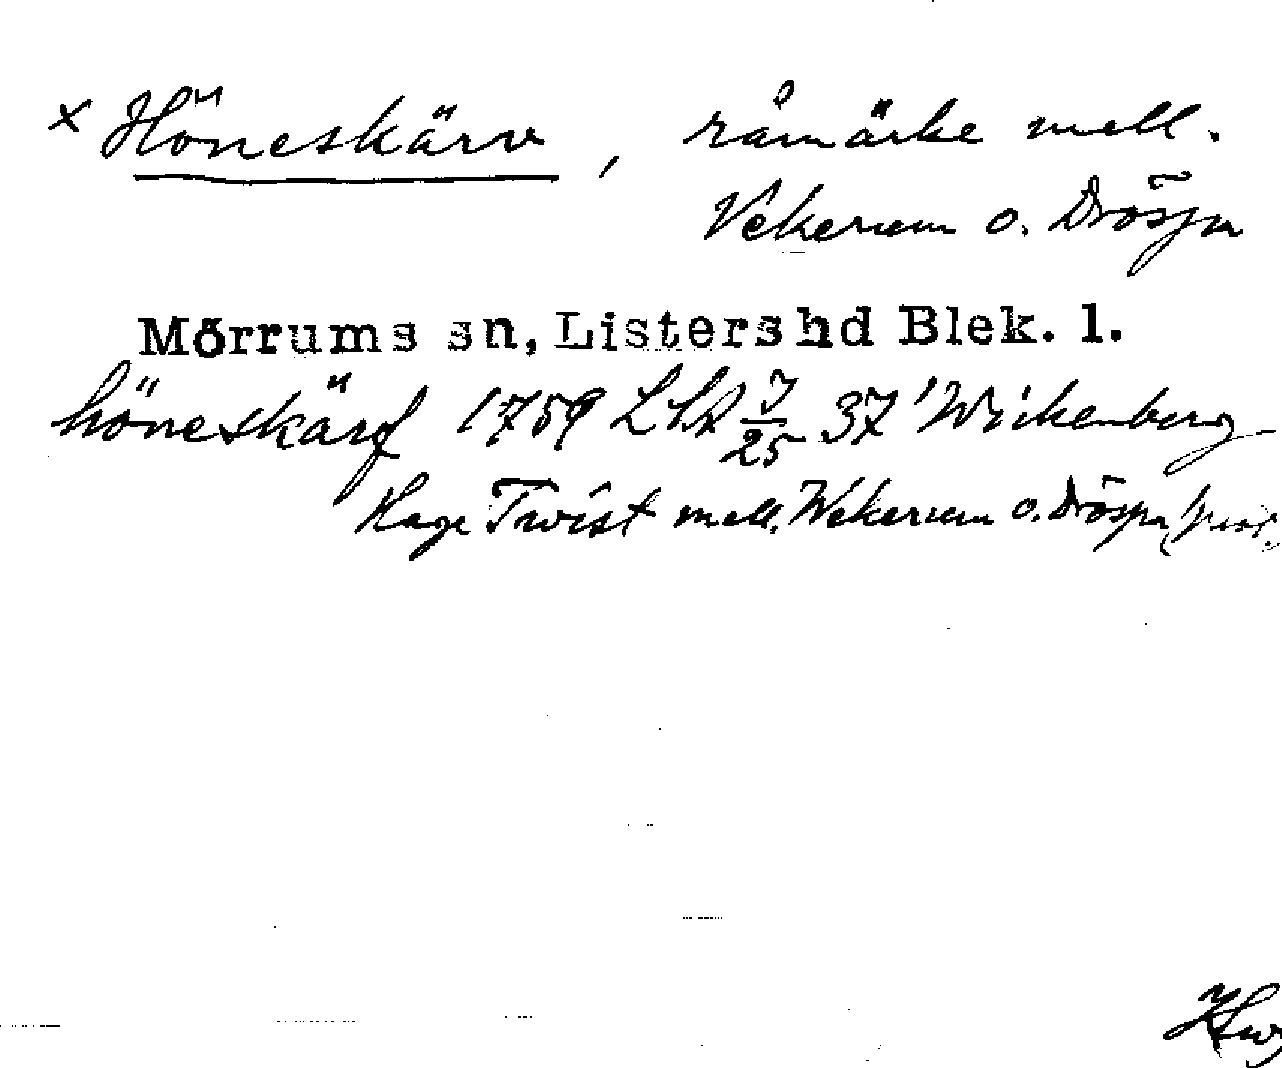 x Höneskärv, råmärke mell.
Vekerum o. Drösja
Mörrums sn, Listershd Blek. l.
höneskärf 1759 LSA 7/25 37 Wickenberg
Hage Twist mell. Wekerum o. Drösja